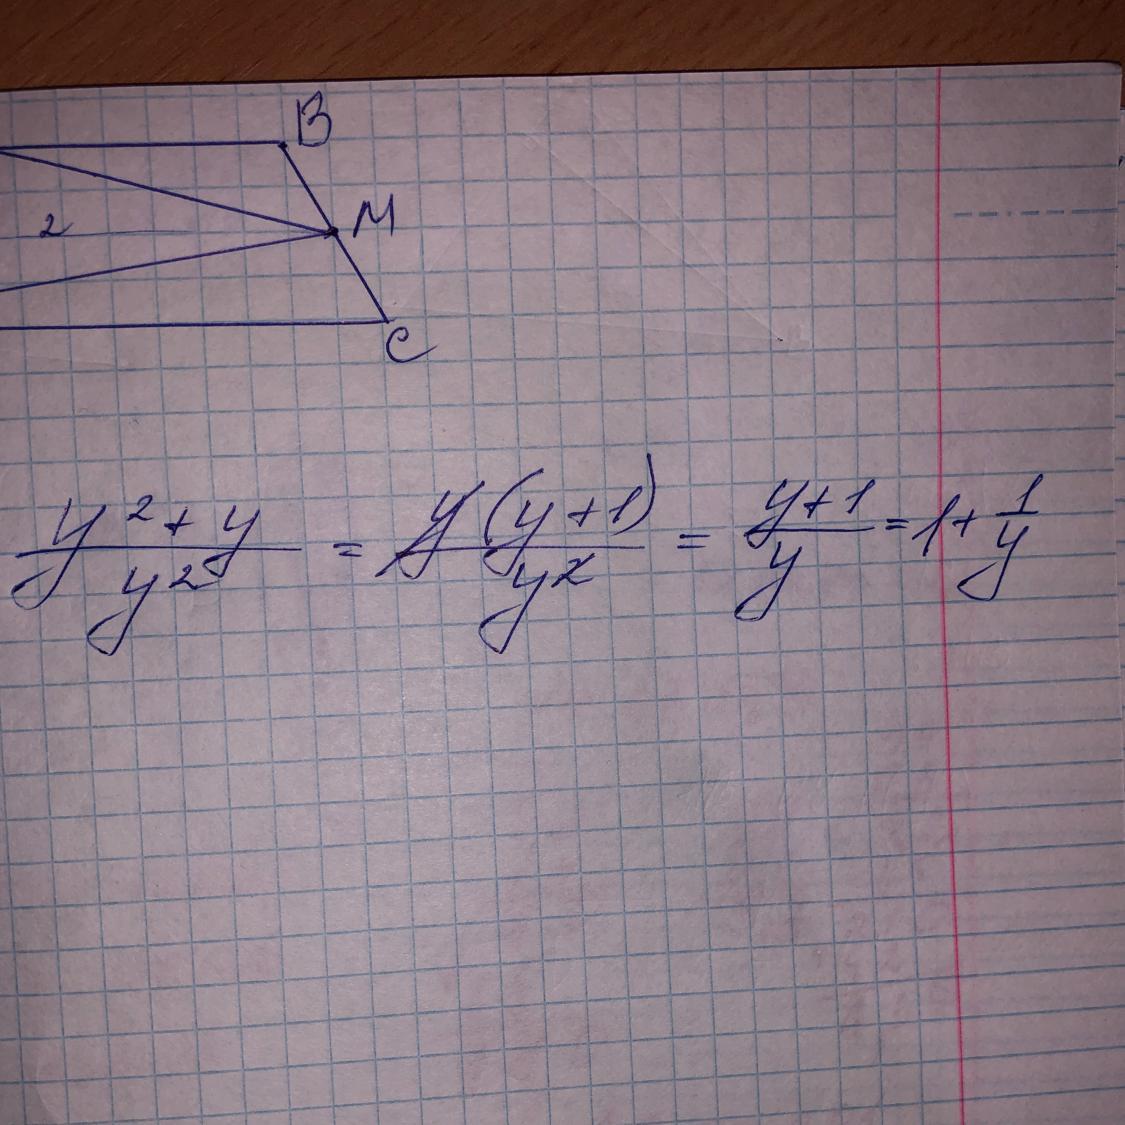 B
2 M
C
y² + y / y² = y(y+1) / y² = y+1 / y = 1 + 1/y